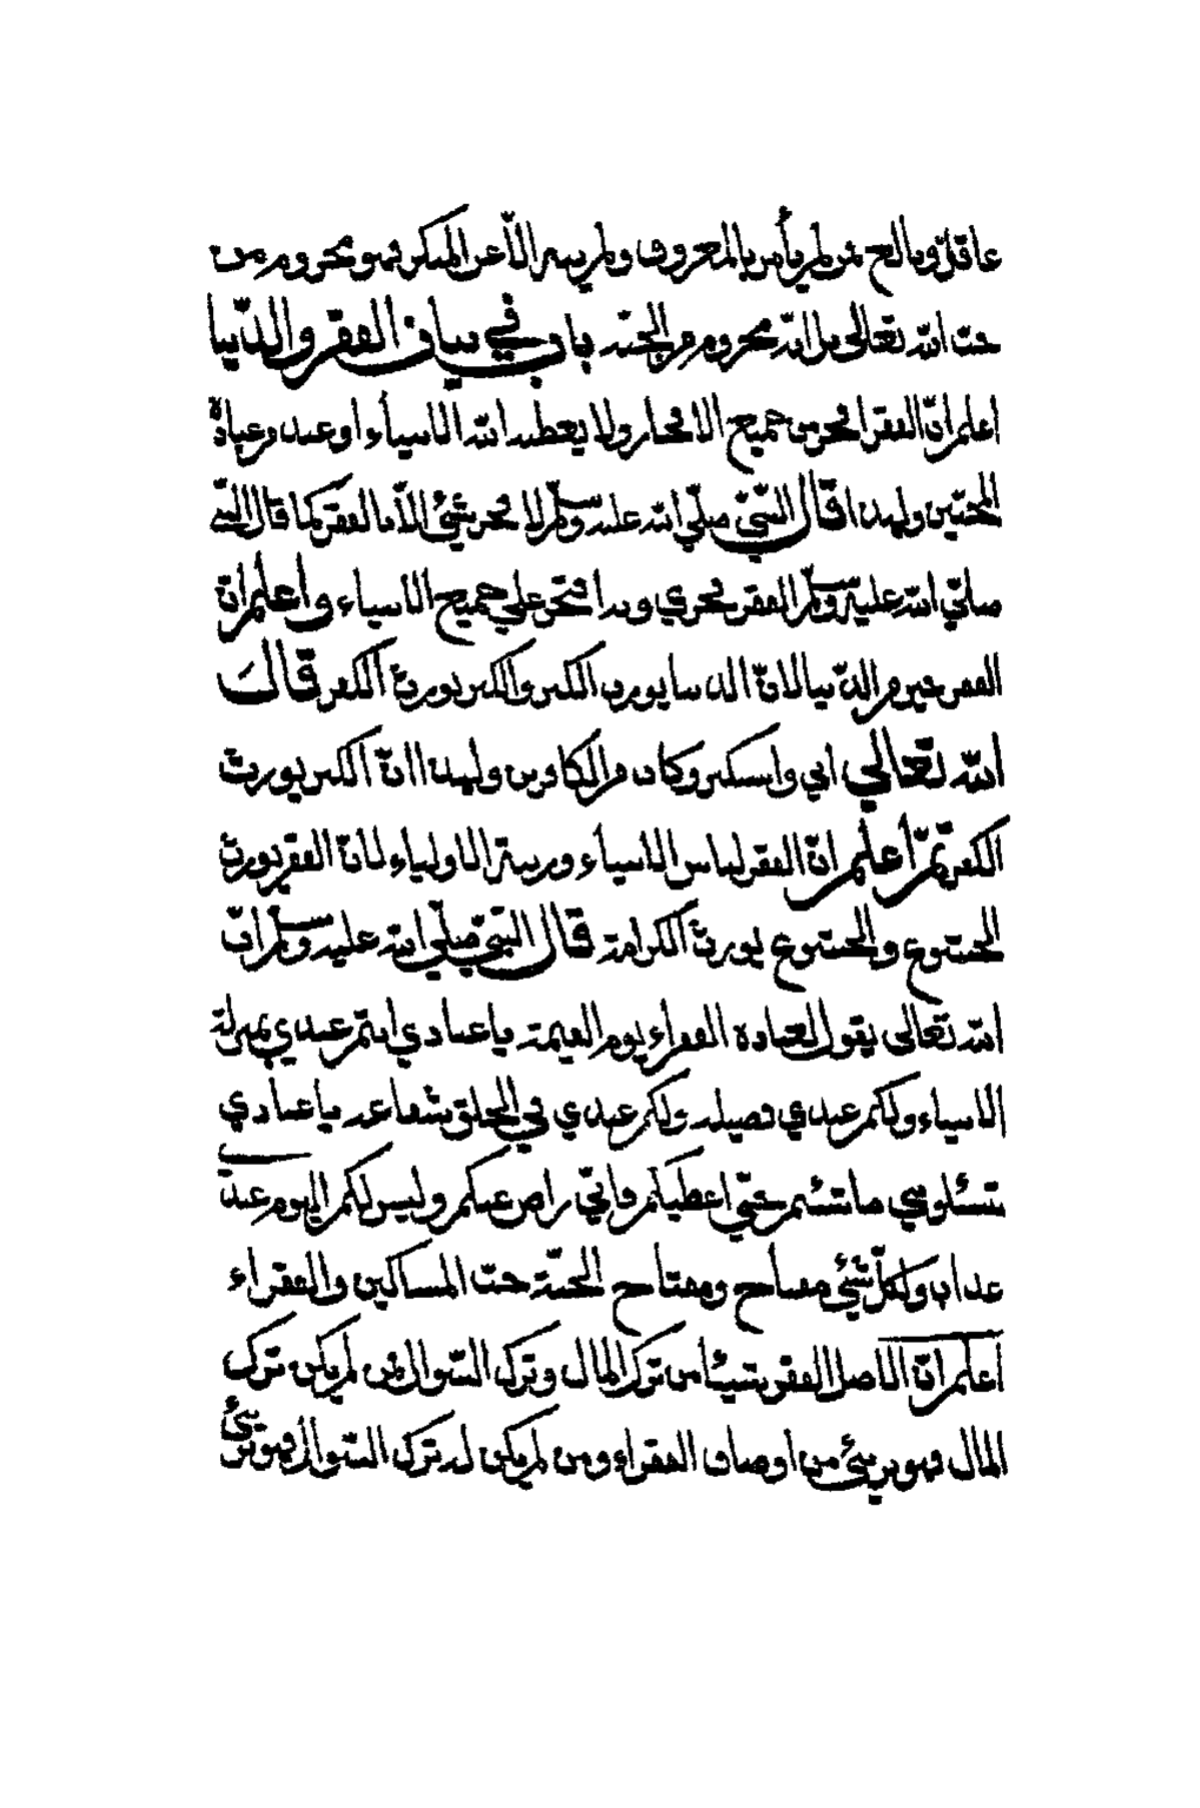 عاقل وبالغ من لم يأمر بالمعروف ولم ينه الّا عن المنكر فهو محروم من
حبّ اللّه تعالى بل انّه محروم من الجنّة باب في بيان الفقر والدّنيا
اعلم انّ الفقر افخر من جميع الافخار ولا يعطيه اللّه الّا انبياء او عبده من عباده
المحبّين ولهذا قال النّبيّ صلّي اللّه عليه وسلّم لا فخر بشئ الّا بالفقر كما قال النّبي
صلّي اللّه عليه وسلّم الفقر فخري وبه افتخر علي جميع الانبياء واعلم انّ
الفقر خير من الدّنيا لانّ الدنيا يورث الكبر والكبر يورث الكفر قال
اللّه تعالي ابي واستكبر وكان من الكافرين ولهذا انّ الكبر يورث
الكفر ثمّ أعلم انّ الفقر لباس الانبياء وزينة الاولياء لانّ الفقر يورث
الخشوع والخشوع يورث الكرامة قال النّبيّ صلّي اللّه عليه وسلّم انّ
اللّه تعالى يقول لعباده الفقراء يوم القيمة يا عبادي انتم عندي بمنزلة
الانبياء ولكم عندي فضيلة ولكم عندي في الخلق شفاعة يا عبادي
تسئلوني ما تشئتم حتّي اعطيكم وانّي راض عنكم وليس لكم اليوم عندي
عذاب ولكلّ شئي مفتاح ومفتاح الجنّة حبّ المساكين والفقراء
اعلم انّ الاصل الفقر شيئا من ترك المال وترك السّوال من لم يكن ترك
المال فهو برئ من اوصاف الفقراء ومن لم يكن له ترك السّوال فهو برئ